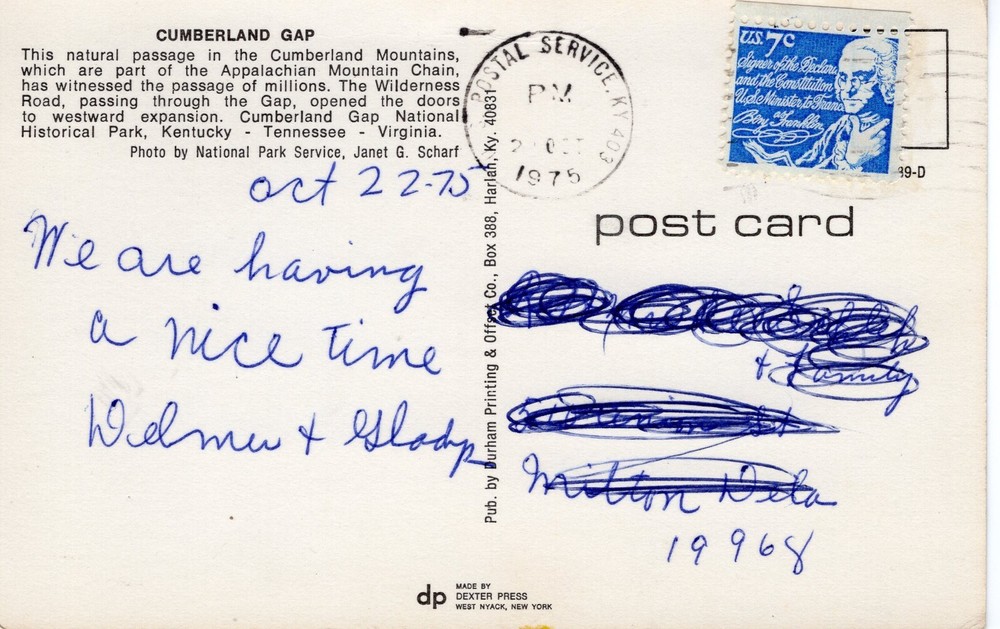 CUMBERLAND GAP
This natural passage in the Cumberland Mountains,
which are part of the Appalachian Mountain Chain,
has witnessed the passage of millions. The Wilderness
Road, passing through the Gap, opened the doors
to westward expansion. Cumberland Gap National
Historical Park, Kentucky - Tennessee - Virginia.
Photo by National Park Service, Janet G. Scharf
oct 22-75
We are having
a nice time
Delmer & Gladys
Pub. by Durham Printing & Offset Co., Box 388, Harlan, Ky. 40831
POSTAL SERVICE, KY 403
PM
OCT
1975
U.S. 7c
Signer of the Declara
and the Constitution
U.S. Minister to Franc
as
Benj Franklin
39-D
post card
& Family
St
Milton Dela
19968
dp
MADE BY
DEXTER PRESS
WEST NYACK, NEW YORK